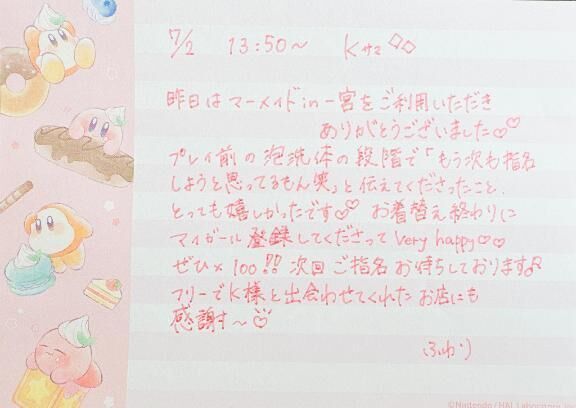 7/2 13:50〜 Kサマ◇◇
昨日はマーメイドin一宮をご利用いただき
ありがとうございました♡♡
プレイ前の泡洗体の段階で「もう次も指名
しようと思ってるもん笑」と伝えてくださったこと、
とっても嬉しかったです♡♡ お着替え終わりに
マイガール登録してくださって Very happy♡♡
ぜひ×100!! 次回ご指名お待ちしております♪
フリーでK様と出会わせてくれたお店にも
感謝す〜♡
ふかり
©Nintendo / HAL Laboratory, Inc.